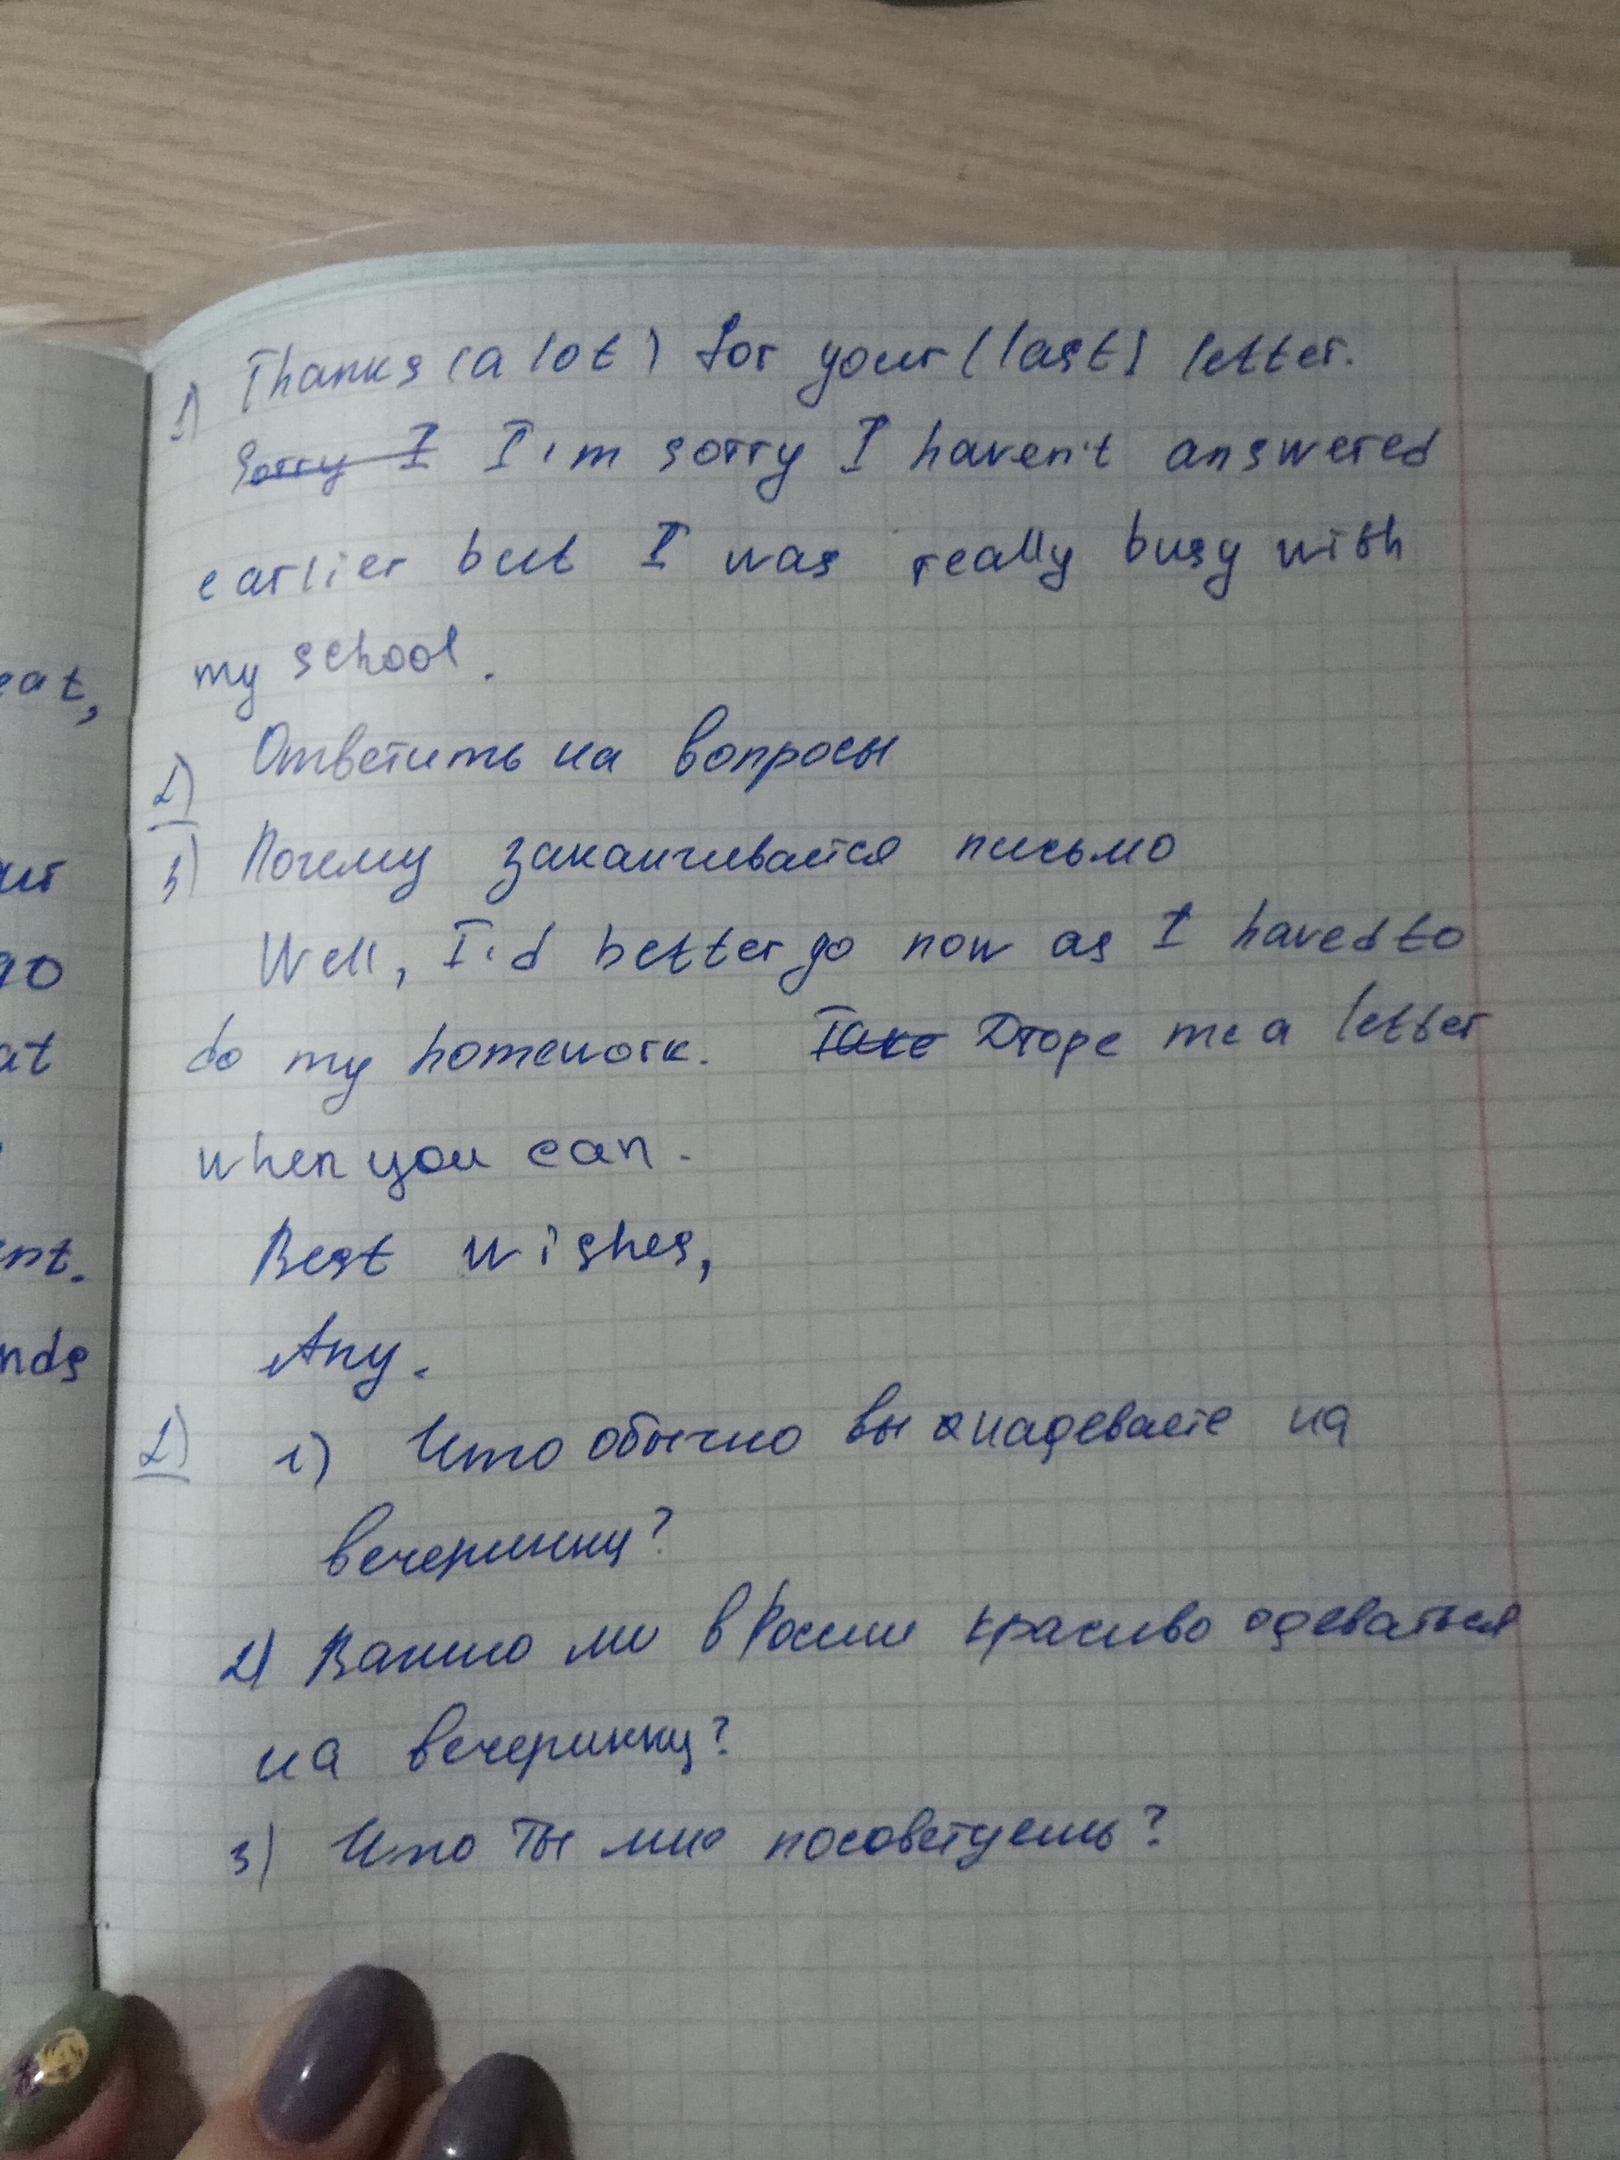 eat,
go
at
nt.
nds
1) Thanks (a lot) for your (last) letter.
Sorry I I'm sorry I haven't answered
earlier but I was really busy with
my school.
2) Ответить на вопросы
3) Почему заканчивается письмо
Well, I'd better go now as I haved to
do my homework. Take Drope me a letter
when you can.
Best wishes,
Any.
2) 1) Что обычно вы надеваете на
вечеринку?
2) Важно ли в России красиво одеваться
на вечеринку?
3) Что ты мне посоветуешь?